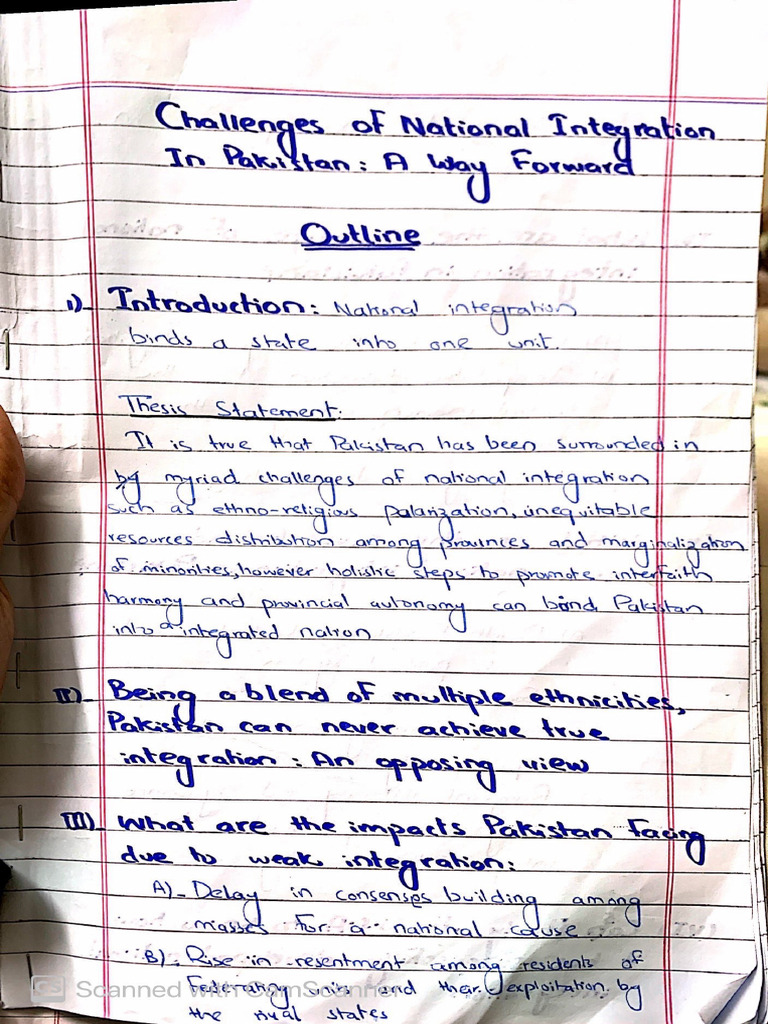 Challenges of National Integration
In Pakistan: A Way Forward
Outline
I) Introduction: National integration
binds a state into one unit.
Thesis Statement:
It is true that Pakistan has been surrounded in
by myriad challenges of national integration
such as ethno-religious palarization, inequitable
resources distribution among provinces and marginalization
of minorities, however holistic steps to promote interfaith
harmony and provincial autonomy can bind Pakistan
into a integrated nation
II) Being a blend of multiple ethnicities,
Pakistan can never achieve true
integration: An opposing view
III) What are the impacts Pakistan facing
due to weak integration:
A)- Delay in consenses building among
masses for a national cause
B). Rise in resentment among residents of
Federating units and their exploitation by
the rival states
CS Scanned with CamScanner